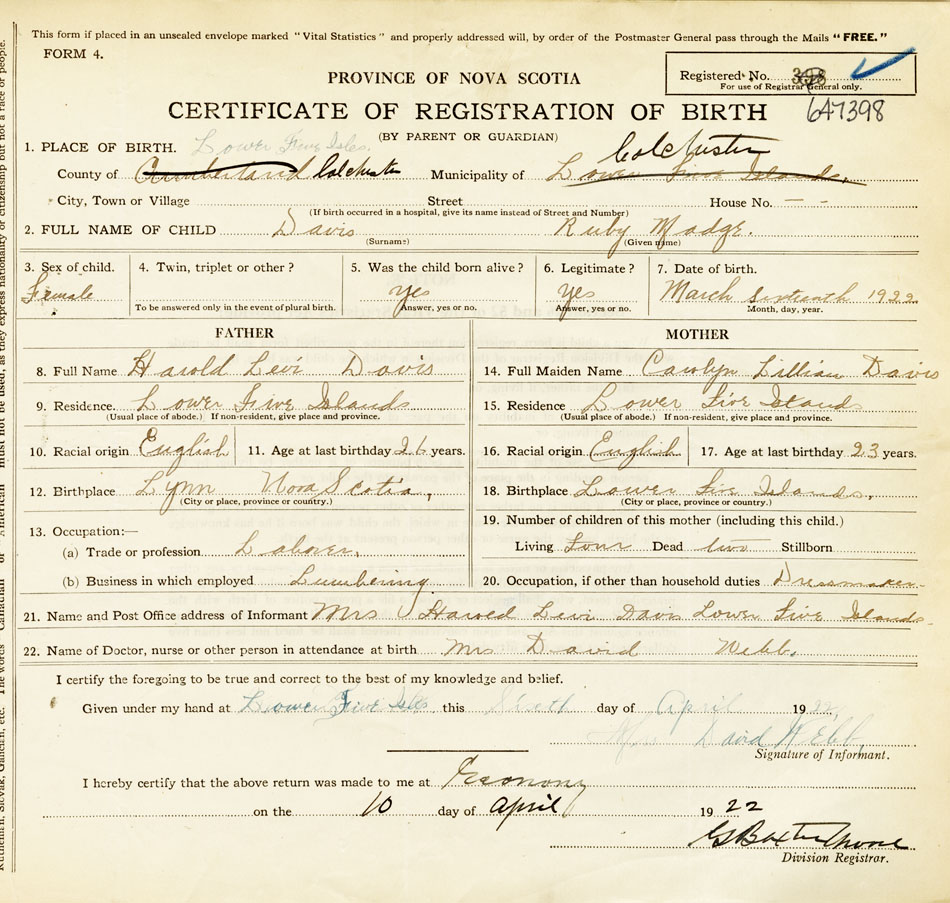 This form if placed in an unsealed envelope marked "Vital Statistics" and properly addressed will, by order of the Postmaster General pass through the Mails "FREE."
FORM 4.
PROVINCE OF NOVA SCOTIA
Registered No.
For use of Registrar General only.
CERTIFICATE OF REGISTRATION OF BIRTH
647398
(BY PARENT OR GUARDIAN)
1. PLACE OF BIRTH. Lower Five Isles.
Colchester
County of Cumberland Colchester Municipality of Lower Five Islands.
City, Town or Village Street House No. — -
(If birth occurred in a hospital, give its name instead of Street and Number)
2. FULL NAME OF CHILD Davis Ruby Madge.
(Surname) (Given name)
3. Sex of child. 4. Twin, triplet or other? 5. Was the child born alive? 6. Legitimate? 7. Date of birth.
Female yes yes March Sixteenth 1922
To be answered only in the event of plural birth. Answer, yes or no. Answer, yes or no. Month, day, year.
FATHER
8. Full Name Harold Levi Davis
9. Residence. Lower Five Islands
(Usual place of abode.) If non-resident, give place and province.
10. Racial origin English 11. Age at last birthday 26 years.
12. Birthplace Lynn Nova Scotia,
(City or place, province or country.)
13. Occupation:—
(a) Trade or profession Laborer,
(b) Business in which employed Lumbering
MOTHER
14. Full Maiden Name Carolyn Lillian Davis
15. Residence Lower Five Islands
(Usual place of abode.) If non-resident, give place and province.
16. Racial origin English 17. Age at last birthday 23 years.
18. Birthplace Lower Five Islands,
(City or place, province or country.)
19. Number of children of this mother (including this child.)
Living Four Dead two Stillborn
20. Occupation, if other than household duties Dressmaker
21. Name and Post Office address of Informant Mrs Harold Levi Davis Lower Five Islands.
22. Name of Doctor, nurse or other person in attendance at birth Mrs David Webb.
I certify the foregoing to be true and correct to the best of my knowledge and belief.
Given under my hand at Lower Five Isles this Sixth day of April 1922,
Mrs David Webb,
Signature of Informant.
I hereby certify that the above return was made to me at Economy
on the 10 day of April 1922
Division Registrar.
must not be used, as they express nationality or citizenship but not a race or people.
Ruthenian, Slovak, Galician, etc. The words "Canadian" or "American"